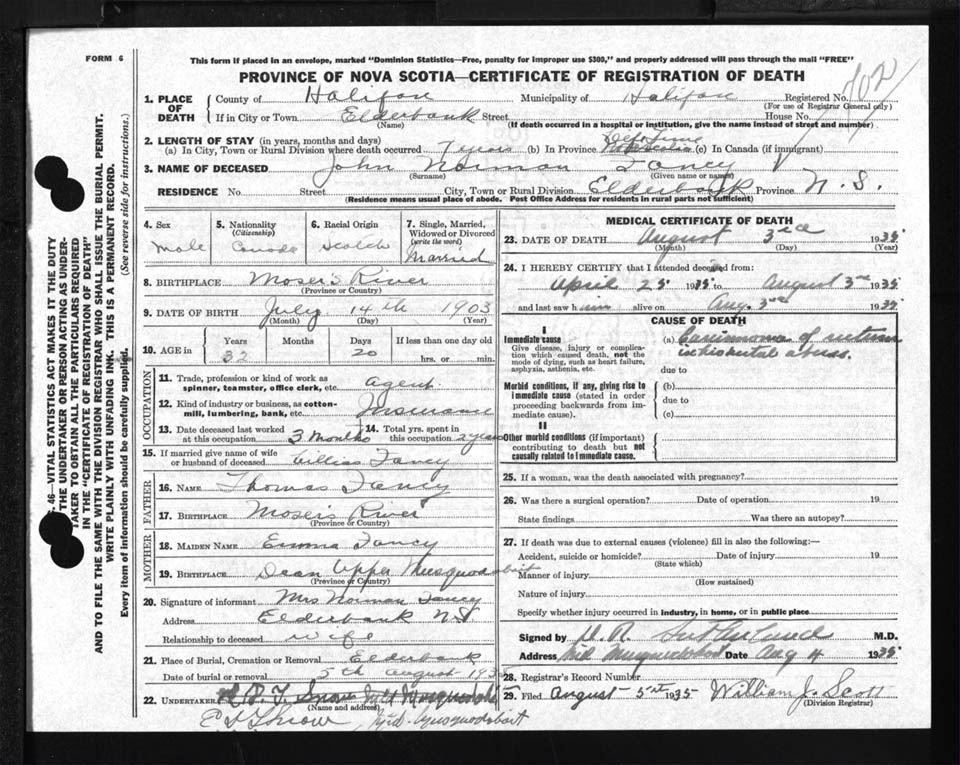 FORM 6
This form if placed in an envelope, marked "Dominion Statistics—Free, penalty for improper use $300," and properly addressed will pass through the mail "FREE"
PROVINCE OF NOVA SCOTIA—CERTIFICATE OF REGISTRATION OF DEATH
1. PLACE OF DEATH
County of Halifax Municipality of Halifax Registered No. 702
(For use of Registrar General only)
If in City or Town Elderbank Street House No.
(Name) (If death occurred in a hospital or institution, give the name instead of street and number)
2. LENGTH OF STAY (in years, months and days)
(a) In City, Town or Rural Division where death occurred 7 years (b) In Province Life Time (c) In Canada (if immigrant)
3. NAME OF DECEASED John Norman Fancy
(Surname) (Given name or names)
RESIDENCE No. Street City, Town or Rural Division Elderbank Province N. S.
(Residence means usual place of abode. Post Office Address for residents in rural parts not sufficient)
4. Sex Male
5. Nationality (Citizenship) Canada
6. Racial Origin Scotch
7. Single, Married, Widowed or Divorced (write the word) Married
8. BIRTHPLACE Moser's River
(Province or Country)
9. DATE OF BIRTH July 14th 1903
(Month) (Day) (Year)
10. AGE in Years 32 Months Days 20 If less than one day old hrs. or min.
OCCUPATION
11. Trade, profession or kind of work as spinner, teamster, office clerk, etc. agent
12. Kind of industry or business, as cotton-mill, lumbering, bank, etc. Insurance
13. Date deceased last worked at this occupation 3 months
14. Total yrs. spent in this occupation 2 years
15. If married give name of wife or husband of deceased Lillias Fancy
FATHER
16. NAME Thomas Fancy
17. BIRTHPLACE Moser's River
(Province or Country)
MOTHER
18. MAIDEN NAME Emma Fancy
19. BIRTHPLACE Dean Upper Musquodoboit
(Province or Country)
20. Signature of informant Mrs Norman Fancy
Address Elderbank N.S
Relationship to deceased wife
21. Place of Burial, Cremation or Removal Elderbank
Date of burial or removal 5th august 1935
22. UNDERTAKER Snow Mid Musquodoboit
(Name and address)
Snow Mid. Musquodoboit
MEDICAL CERTIFICATE OF DEATH
23. DATE OF DEATH August 3rd 1935
(Month) (Day) (Year)
24. I HEREBY CERTIFY that I attended deceased from:
April 25 1935 to August 3rd 1935
and last saw him alive on Aug. 3rd 1935
CAUSE OF DEATH
I
Immediate cause
Give disease, injury or complication which caused death, not the mode of dying, such as heart failure, asphyxia, asthenia, etc.
(a) Carcinoma of rectum
abscess.
due to
Morbid conditions, if any, giving rise to immediate cause (stated in order proceeding backwards from immediate cause).
(b)
due to
(c)
II
Other morbid conditions (if important) contributing to death but not causally related to immediate cause.
25. If a woman, was the death associated with pregnancy?
26. Was there a surgical operation? Date of operation 19
State findings Was there an autopsy?
27. If death was due to external causes (violence) fill in also the following:—
Accident, suicide or homicide? Date of injury 19
(State which)
Manner of injury
(How sustained)
Nature of injury
Specify whether injury occurred in industry, in home, or in public place
Signed by Sutherland M.D.
Address Mid Musquodoboit Date Aug 4 1935
28. Registrar's Record Number
29. Filed August 5th 1935 William J. Scott
(Division Registrar)
46—VITAL STATISTICS ACT MAKES IT THE DUTY
THE UNDERTAKER OR PERSON ACTING AS UNDER-
TAKER TO OBTAIN ALL THE PARTICULARS REQUIRED
IN THE "CERTIFICATE OF REGISTRATION OF DEATH"
AND TO FILE THE SAME WITH THE DIVISION REGISTRAR WHO SHALL ISSUE THE BURIAL PERMIT.
WRITE PLAINLY WITH UNFADING INK. THIS IS A PERMANENT RECORD.
Every item of information should be carefully supplied. (See reverse side for instructions.)